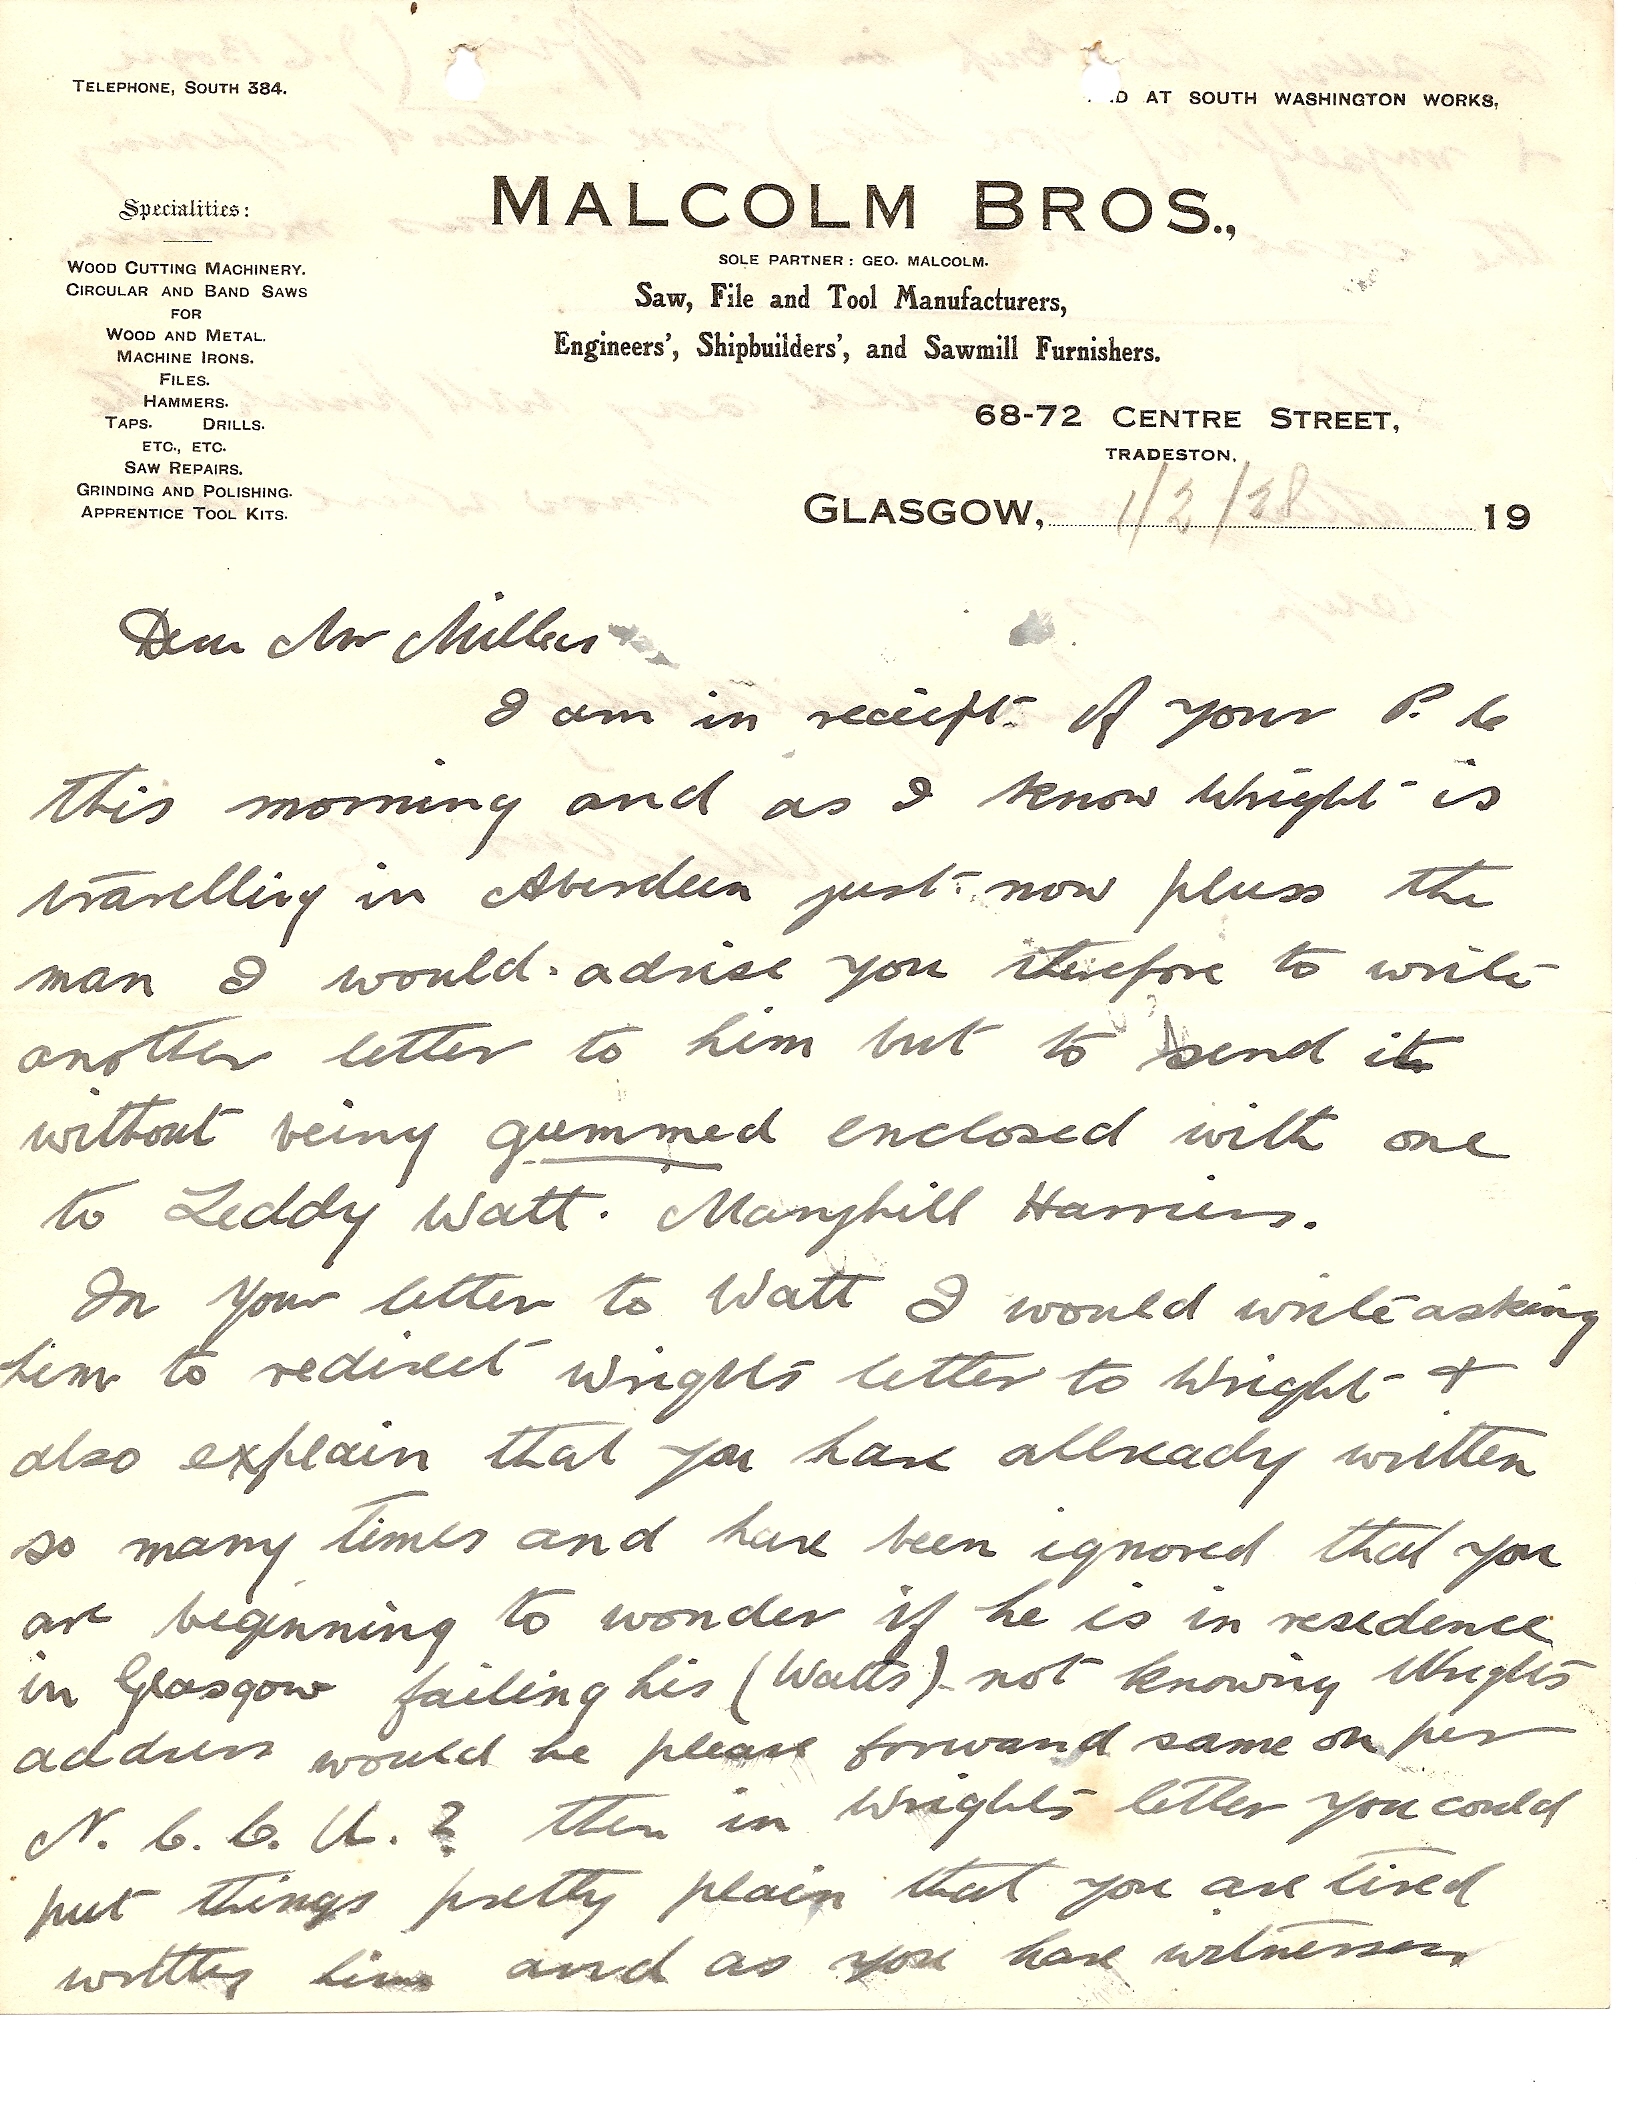 TELEPHONE, SOUTH 384.
AND AT SOUTH WASHINGTON WORKS,
MALCOLM BROS.,
SOLE PARTNER: GEO. MALCOLM.
Saw, File and Tool Manufacturers,
Engineers', Shipbuilders', and Sawmill Furnishers.
68-72 CENTRE STREET,
TRADESTON.
GLASGOW, 1/2/28 19
Specialities:
WOOD CUTTING MACHINERY.
CIRCULAR AND BAND SAWS
FOR
WOOD AND METAL.
MACHINE IRONS.
FILES.
HAMMERS.
TAPS. DRILLS.
ETC., ETC.
SAW REPAIRS.
GRINDING AND POLISHING.
APPRENTICE TOOL KITS.
Dear Mr Miller
I am in receipt of your P. C
this morning and as I know Wright is
travelling in Aberdeen just now pluss the
man I would advise you therefore to write
another letter to him but to send it
without being gummed enclosed with one
to Teddy Watt. Maryhill Harriers.
In your letter to Watt I would write asking
him to redirect Wrights letter to Wright +
also explain that you have allready written
so many times and have been ignored that you
are beginning to wonder if he is in resedence
in Glasgow failing his (Watts) not knowing Wrights
address would he please forward same on per
N. C. C. U. ? then in Wrights letter you could
put things pretty plain that you are tired
writting him and as you have witnesses